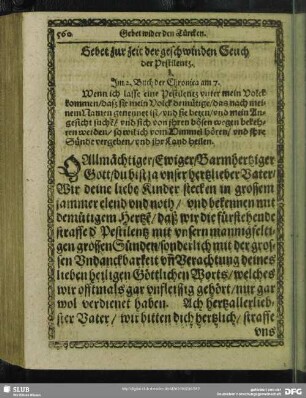 560. Gebet wider den Türcken.
Gebet zur zeit der geschwinden Seuch
der Pestilentz.
1.
Im 2. Buch der Chronica am 7.
Wenn ich lasse eine Pestilentz vnter mein Volck
kommen/daß sie mein Volck demütige/das nach mei-
nem Namen genennet ist/vnd sie beten/vnd mein An-
gesicht suchē/ vnd sich von ihren bösen wegen bekeh-
ren werden/so wil ich vom Himmel hören/ vnd ihre
Sünde vergeben/vnd ihr Land heilen.
O Allmächtiger/Ewiger/Barmhertziger
Gott/du bist ja vnser hertzlieber Vater/
Wir deine liebe Kinder stecken in grossem
jammer elend vnd noth/ vnd bekennen mit
demütigem Hertzē/ daß wir die fürstehende
straffe d Pestilentz mit vnsern mannigfelti-
gen grossen Sünden/sonderlich mit der gros-
sen Vndanckbarkeit vñ Verachtung deines
lieben heiligen Göttlichen Worts/ welches
wir offtmals gar vnfleissig gehört/nur gar
wol verdienet haben. Ach hertzallerlieb-
ster Vater/ wir bitten dich hertzlich/ straffe
vns
SLUB